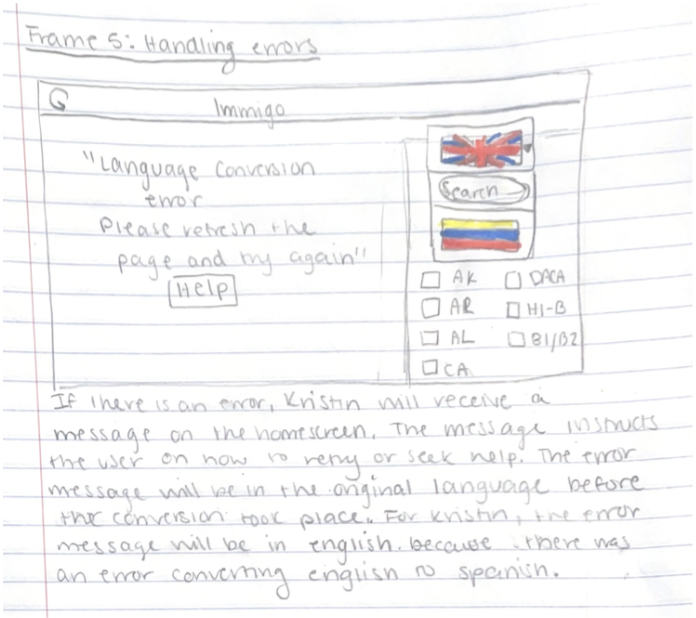 Frame 5: Handling errors
G
Immigo
"Language Conversion
error
Please refresh the
page and try again"
Help
Search
AK
DACA
AR
H1-B
AL
B1/B2
CA
If there is an error, Kristin will receive a
message on the homescreen. The message instructs
the user on how to retry or seek help. The error
message will be in the original language before
the conversion took place. For Kristin, the error
message will be in english because there was
an error converting english to spanish.